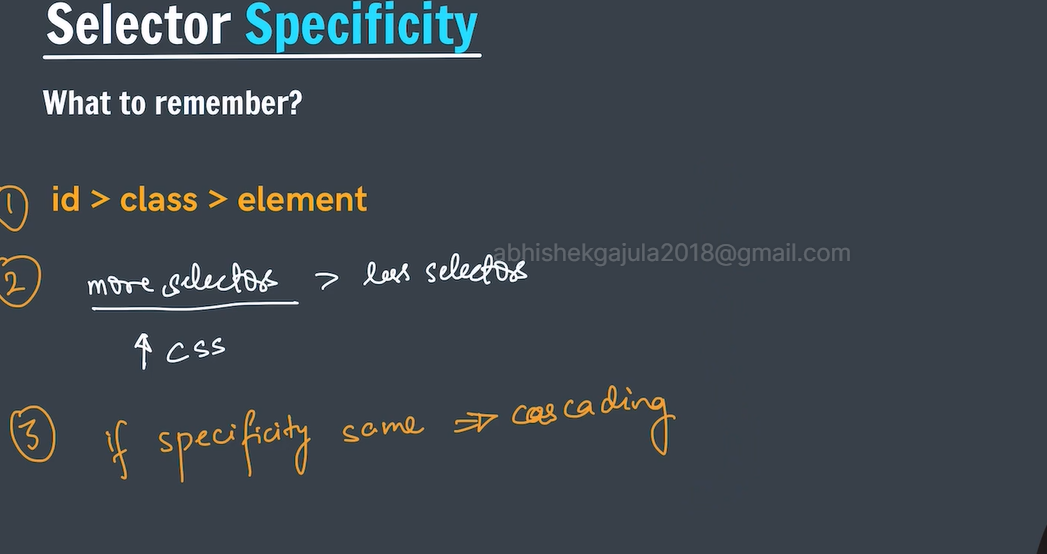 Selector Specificity
What to remember?
1 id > class > element
abhishekgajula2018@gmail.com
2 more selectos > less selectos
↑ css
3 if specificity same ⇒ cascading